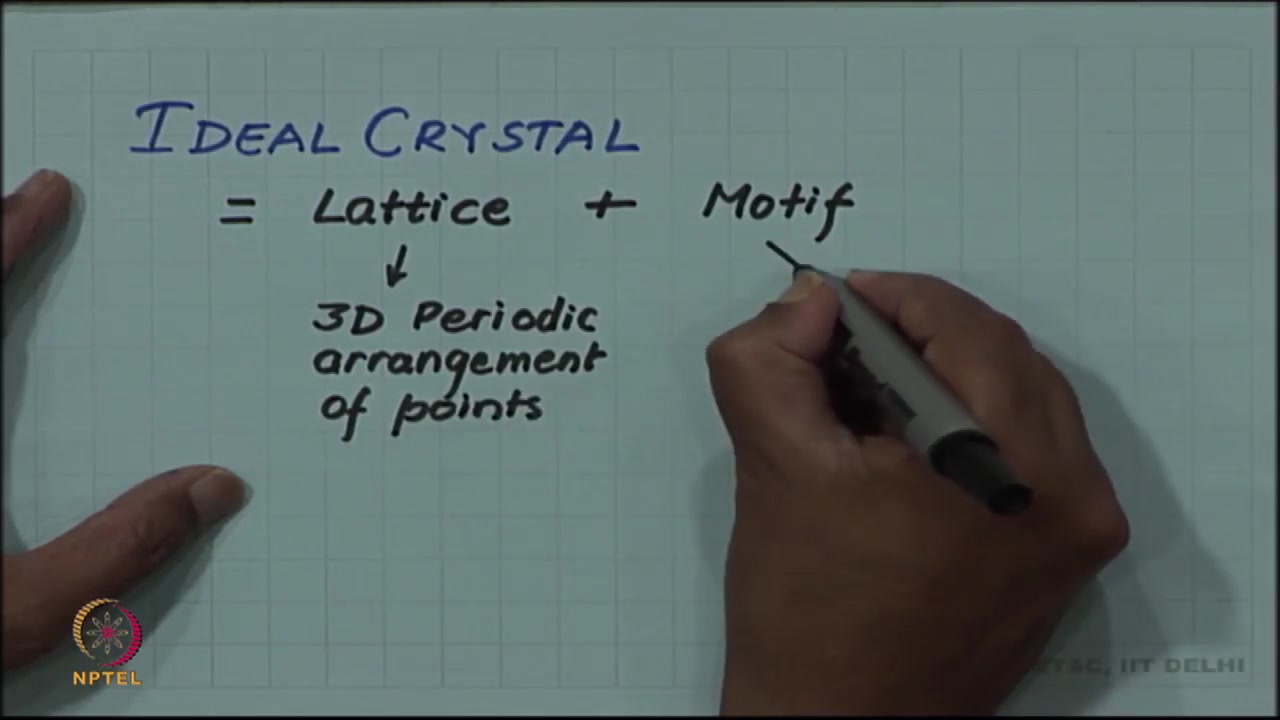 IDEAL CRYSTAL
= Lattice + Motif
↓
3D Periodic
arrangement
of points
NPTEL
IIT DELHI